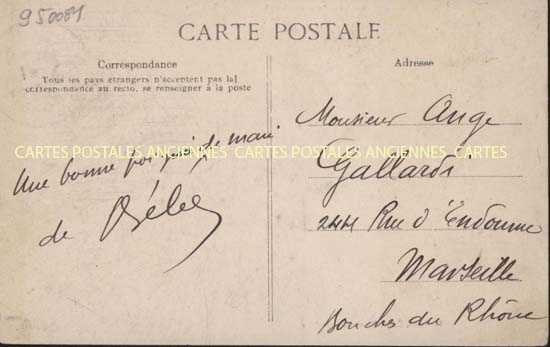 950084
CARTE POSTALE
Correspondance
Tous les pays étrangers n'acceptent pas la
correspondance au recto, se renseigner à la poste
Adresse
CARTES POSTALES ANCIENNES CARTES POSTALES ANCIENNES CARTES
Une bonne
de Bébé
Monsieur Ange
Gallardi
244 Rue d'Endoume
Marseille
Bouches du Rhône